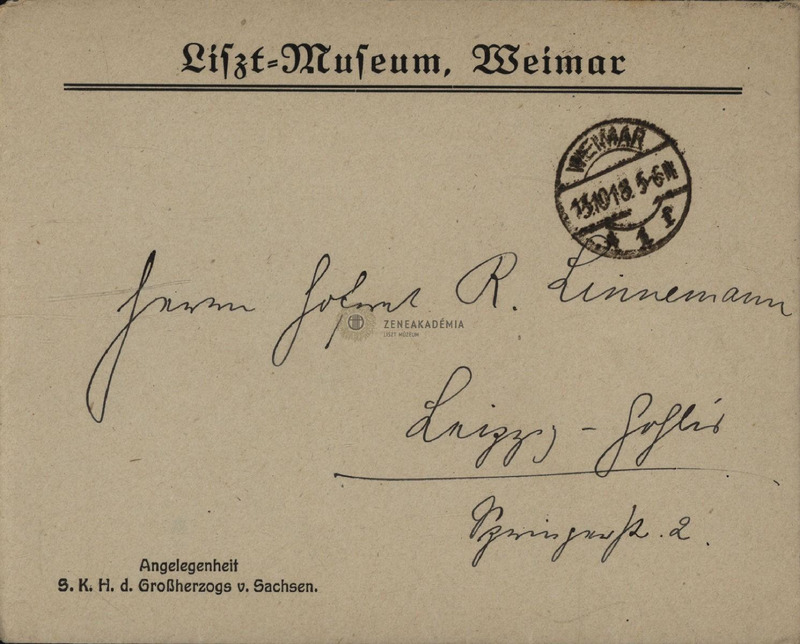 Liszt-Museum, Weimar
WEIMAR
13.10.18. 5-6 N
* 1 f
Herrn Hofrat R. Linnemann
ZENEAKADÉMIA
LISZT MÚZEUM
Leipzig - Gohlis
Springerstr. 2.
Angelegenheit
S. K. H. d. Großherzogs v. Sachsen.